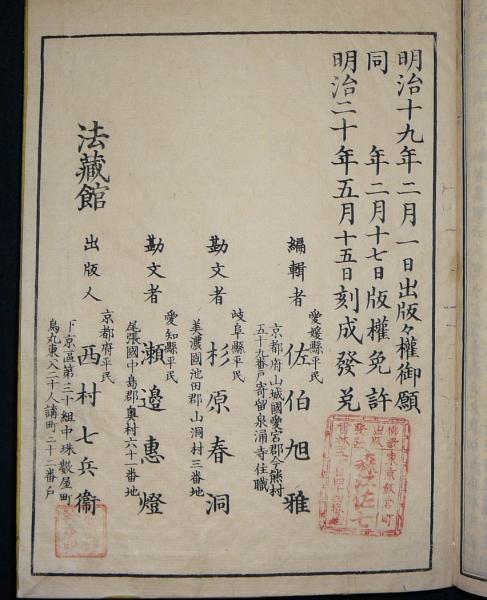 明治十九年二月一日出版々權御願
同　　年二月十七日版權免許
明治二十年五月十五日刻成發兌
愛媛縣平民
編輯者　佐伯旭雅
京都府山城國愛宕郡今熊村
五十九番戸寄留泉涌寺住職
岐阜縣平民
勘文者　杉原春洞
美濃國池田郡山洞村三番地
愛知縣平民
勘文者　瀬邉惠燈
尾張國中島郡奥村六十一番地
京都府平民
出版人　西村七兵衞
下京區第三十組中珠數屋町
烏丸東入二十人講町二十二番戸
法藏館
佛敎
出版
發兌
東京
森江佐七